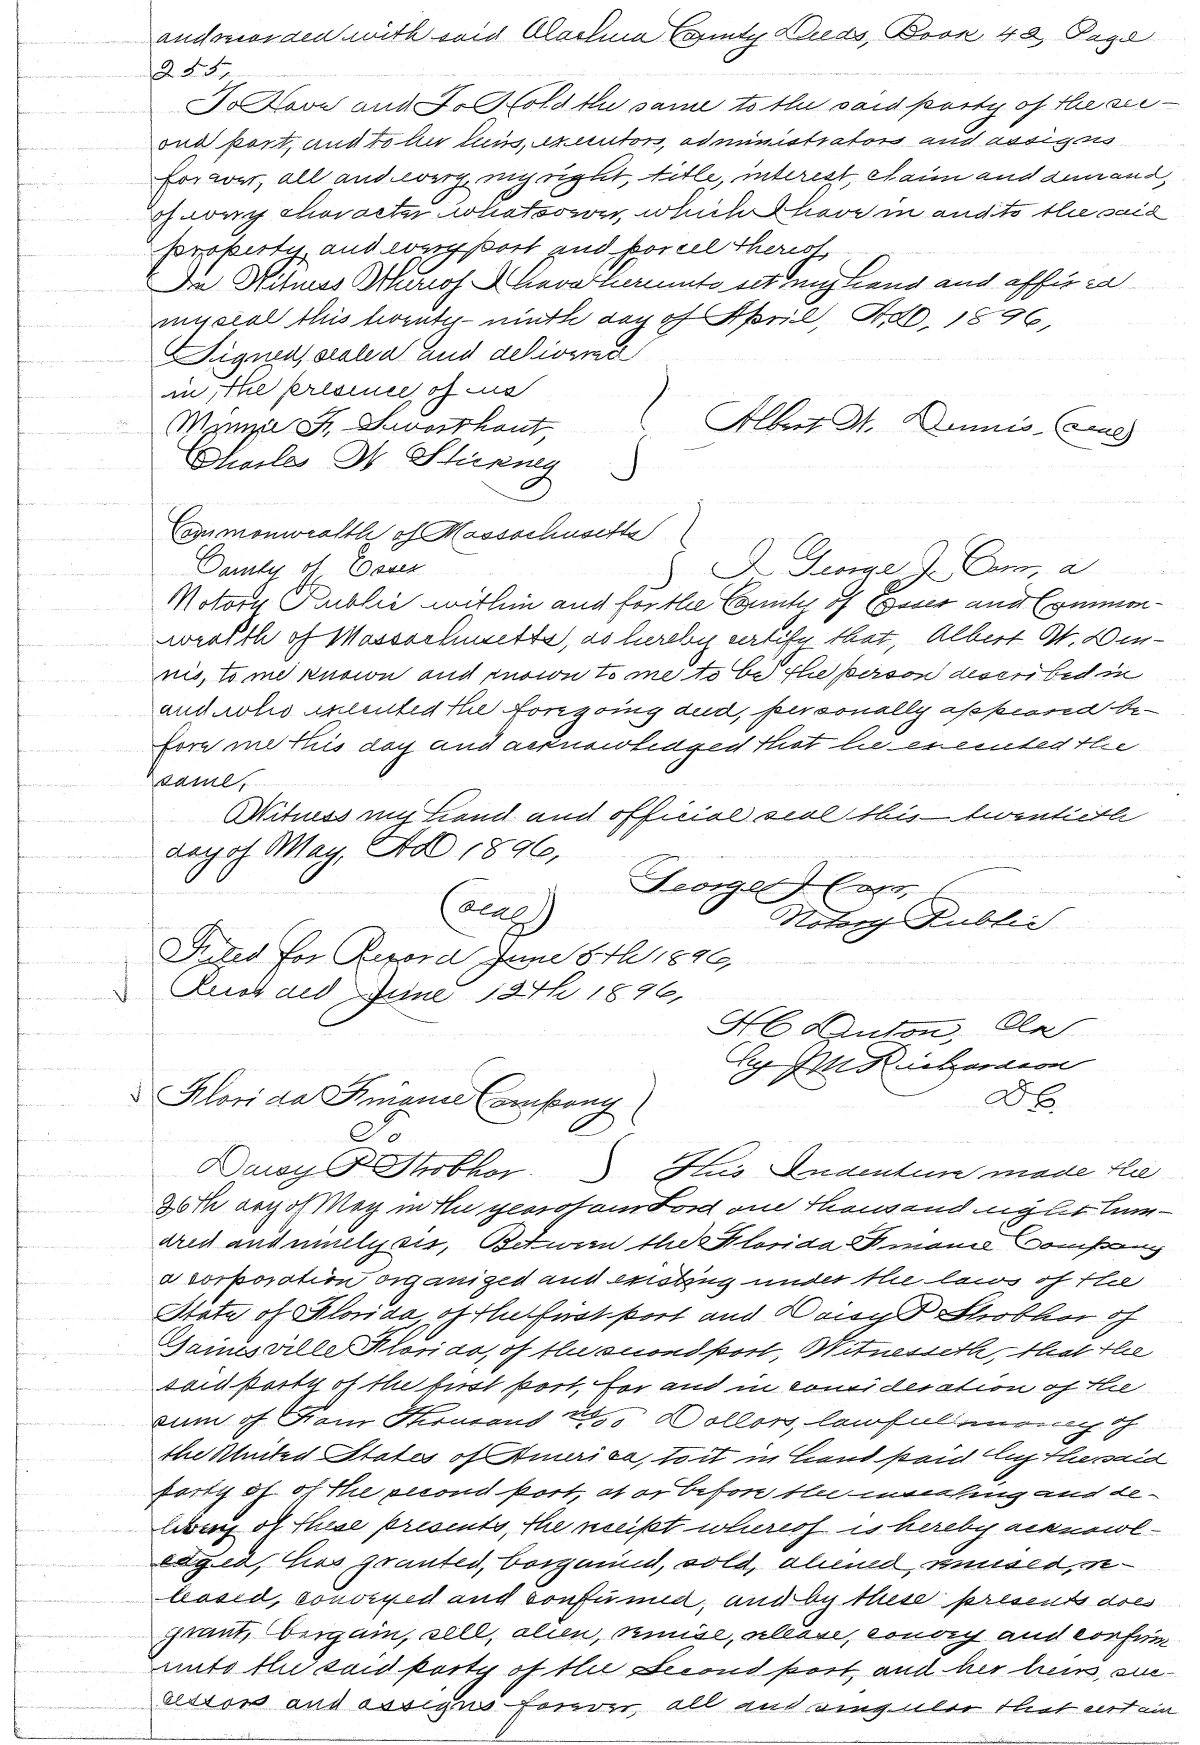 and recorded with said Alachua County Deeds, Book 42, Page
255,
To Have and To Hold the same to the said party of the sec-
ond part, and to her heirs, executors, administrators and assigns
forever, all and every, my right, title, interest, claim and demand,
of every character whatsoever, which I have in and to the said
property, and every part and parcel thereof,
In Witness Whereof I have hereunto set my hand and affixed
my seal this twenty-ninth day of April, A.D. 1896,
Signed, sealed and delivered
in, the presence, of us
Minnie F. Swarthout,
Albert W. Dennis. (seal)
Charles W Stickney
Commonwealth of Massachusetts
County of Essex
I George J. Carr, a
Notary Public within and for the County of Essex and Common-
wealth of Massachusetts, do hereby certify that, Albert W. Den-
nis, to me known and known to me to be the person described in
and who executed the foregoing deed, personally appeared be-
fore me this day and acknowledged that he executed the
same,
Witness my hand and official seal this twentieth
day of May, A D 1896,
George J Carr,
(seal)
Notary Public
Filed for Record June 5th 1896,
Recorded June 12th 1896,
H C Denton, Clk
by J M Richardson
D C.
Florida Finance Company
To
Daisy P Strobhar. This Indenture made the
26th day of May in the year of our Lord one thousand eight hun-
dred and ninety six, Between the Florida Finance Company
a corporation organized and existing under the laws of the
State of Florida, of the first part and Daisy P Strobhar of
Gainesville Florida, of the second part, Witnesseth, that the
said party of the first part, for and in consideration of the
sum of Four Thousand no/100 Dollars, lawful money of
the United States of America, to it in hand paid by the said
party of of the second part, at or before the ensealing and de-
livery of these presents, the receipt whereof is hereby acknowl-
edged, has granted, bargained, sold, aliened, remised, re-
leased, conveyed and confirmed, and by these presents does
grant, bargain, sell, alien, remise, release, convey and confirm
unto the said party of the Second part, and her heirs, suc-
cessors and assigns forever, all and singular that certain